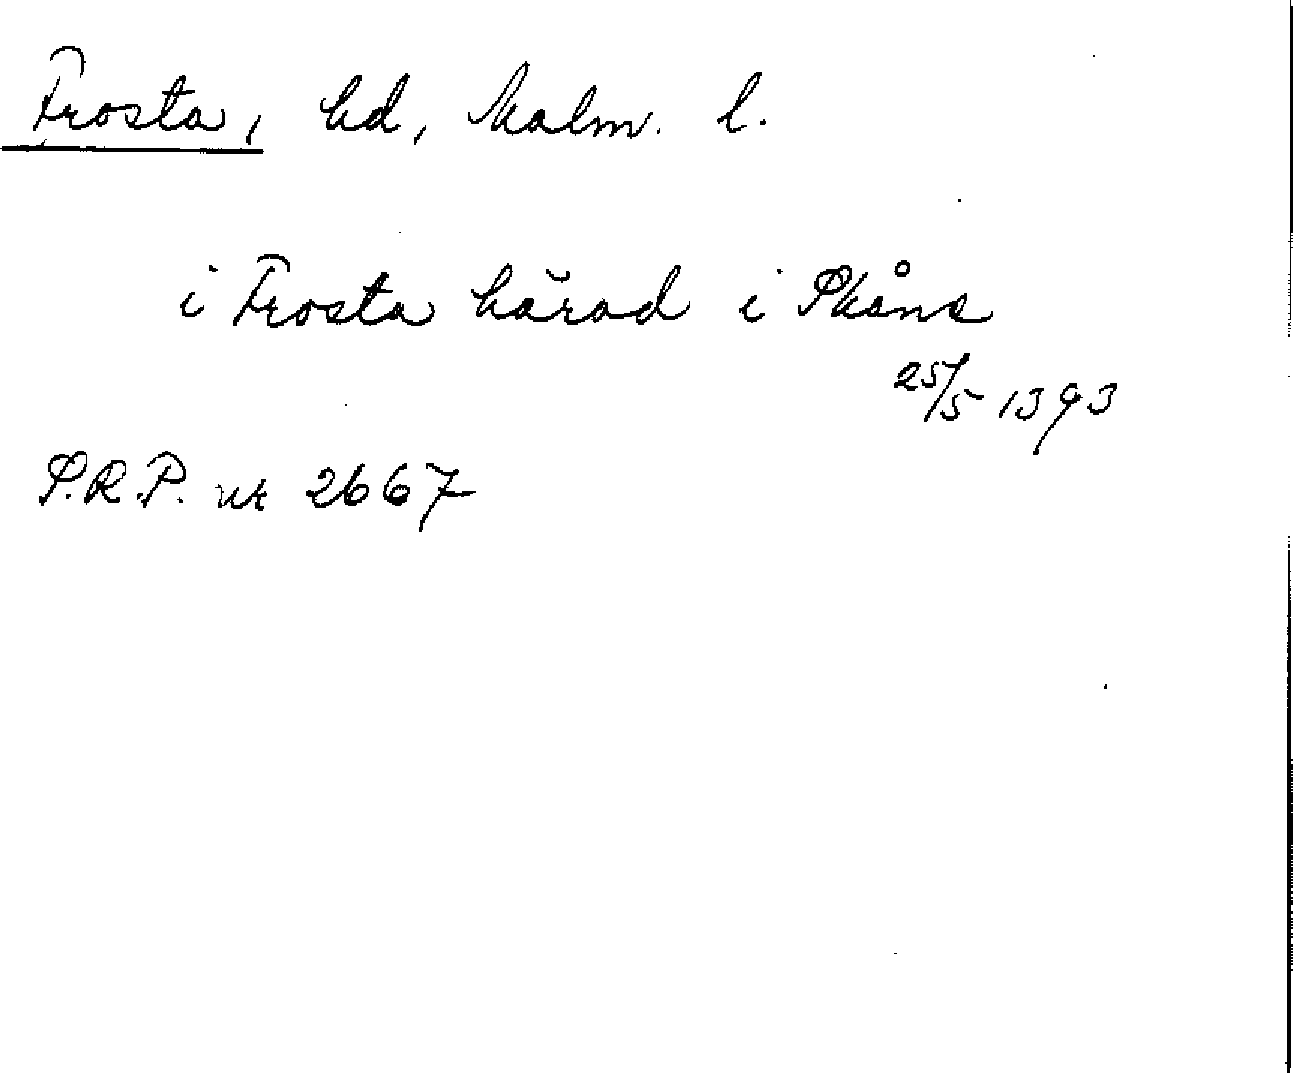 Frosta, hd, Malm. l.
i Frosta härad i Skåne
25/5 1393
P.R.P. nr 2667